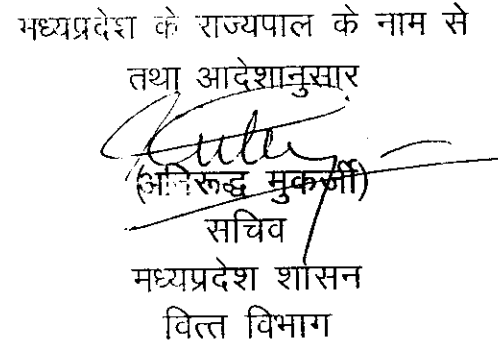 मध्यप्रदेश के राज्यपाल के नाम से
तथा आदेशानुसार
(अनिरूद्ध मुकर्जी)
सचिव
मध्यप्रदेश शासन
वित्त विभाग